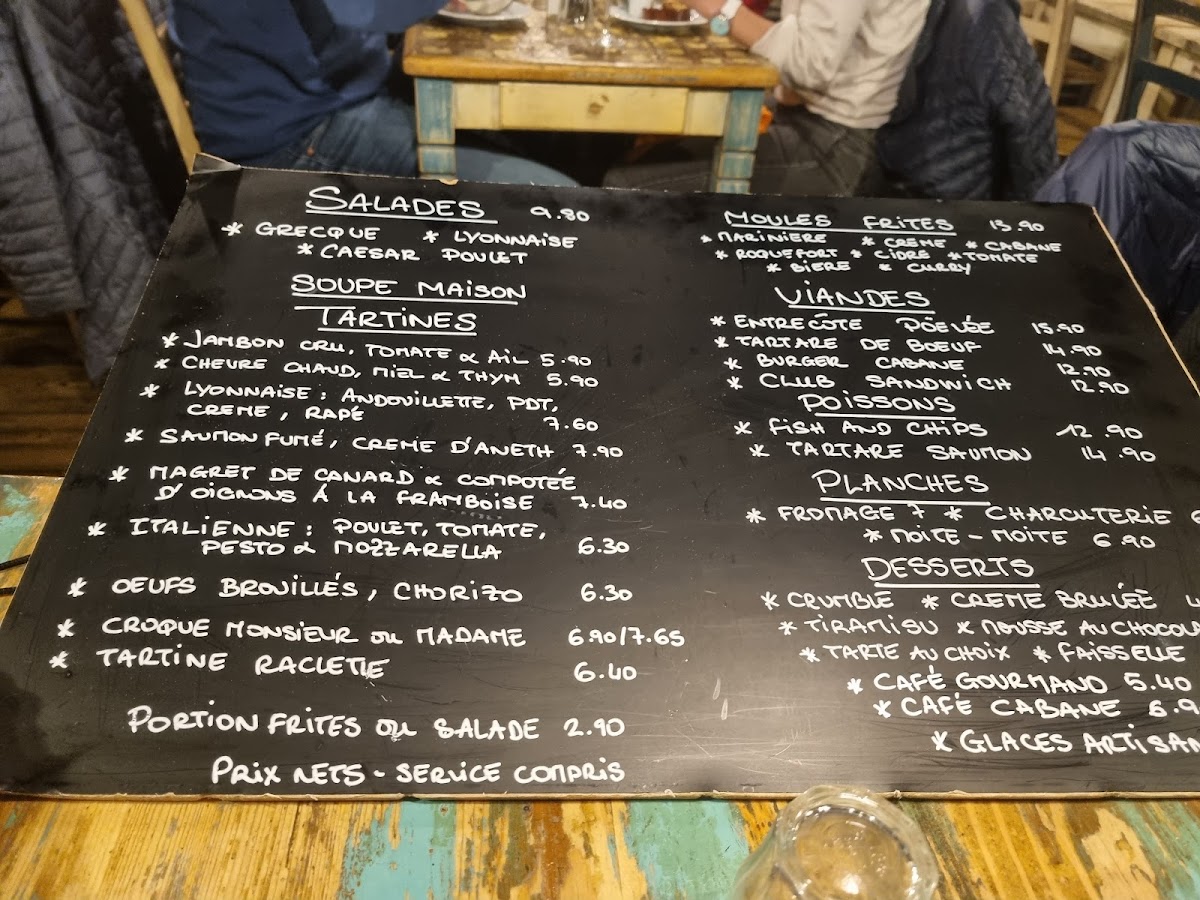 SALADES 9.80
* GRECQUE * LYONNAISE
* CAESAR POULET
SOUPE MAISON
TARTINES
* JAMBON CRU, TOMATE & AIL 5.90
* CHEVRE CHAUD, MIEL & THYM 5.90
* LYONNAISE : ANDOUILLETTE, PDT,
CREME, RAPÉ 7.60
* SAUMON FUMÉ, CREME D'ANETH 7.90
* MAGRET DE CANARD & COMPOTÉE
D'OIGNONS À LA FRAMBOISE 7.40
* ITALIENNE : POULET, TOMATE,
PESTO & MOZZARELLA 6.30
* OEUFS BROUILLÉS, CHORIZO 6.30
* CROQUE MONSIEUR ou MADAME 6.90/7.65
* TARTINE RACLETTE 6.40
PORTION FRITES ou SALADE 2.90
PRIX NETS - SERVICE COMPRIS
MOULES FRITES 13.90
* MARINIERE * CREME * CABANE
* ROQUEFORT * CIDRE * TOMATE
* BIERE * CURRY
VIANDES
* ENTRECÔTE PÖELÉE 15.90
* TARTARE DE BOEUF 14.90
* BURGER CABANE 12.90
* CLUB SANDWICH 12.90
POISSONS
* FISH AND CHIPS 12.90
* TARTARE SAUMON 14.90
PLANCHES
* FROMAGE 7 * CHARCUTERIE 6
* MOITE-MOITE 6.90
DESSERTS
* CRUMBLE * CREME BRULÉE
* TIRAMISU * MOUSSE AU CHOCOLA
* TARTE AU CHOIX * FAISSELLE
* CAFÉ GOURMAND 5.40
* CAFÉ CABANE 6.9
* GLACES ARTISAN